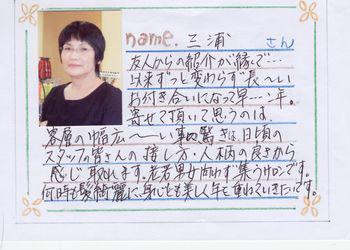 name. 三浦 さん
友人からの紹介が縁で…
以来ずっと変わらず長〜い
お付き合いになって早…年。
寄せて頂いて思うのは、
客層の幅広〜い事 驚きは、日頃の
スタッフの皆さんの接し方・人柄の良さから
感じ取れます。老若男女問わず集うサロンです。
何時も髪綺麗に、身も心も美しく年を重ねていきたいです。